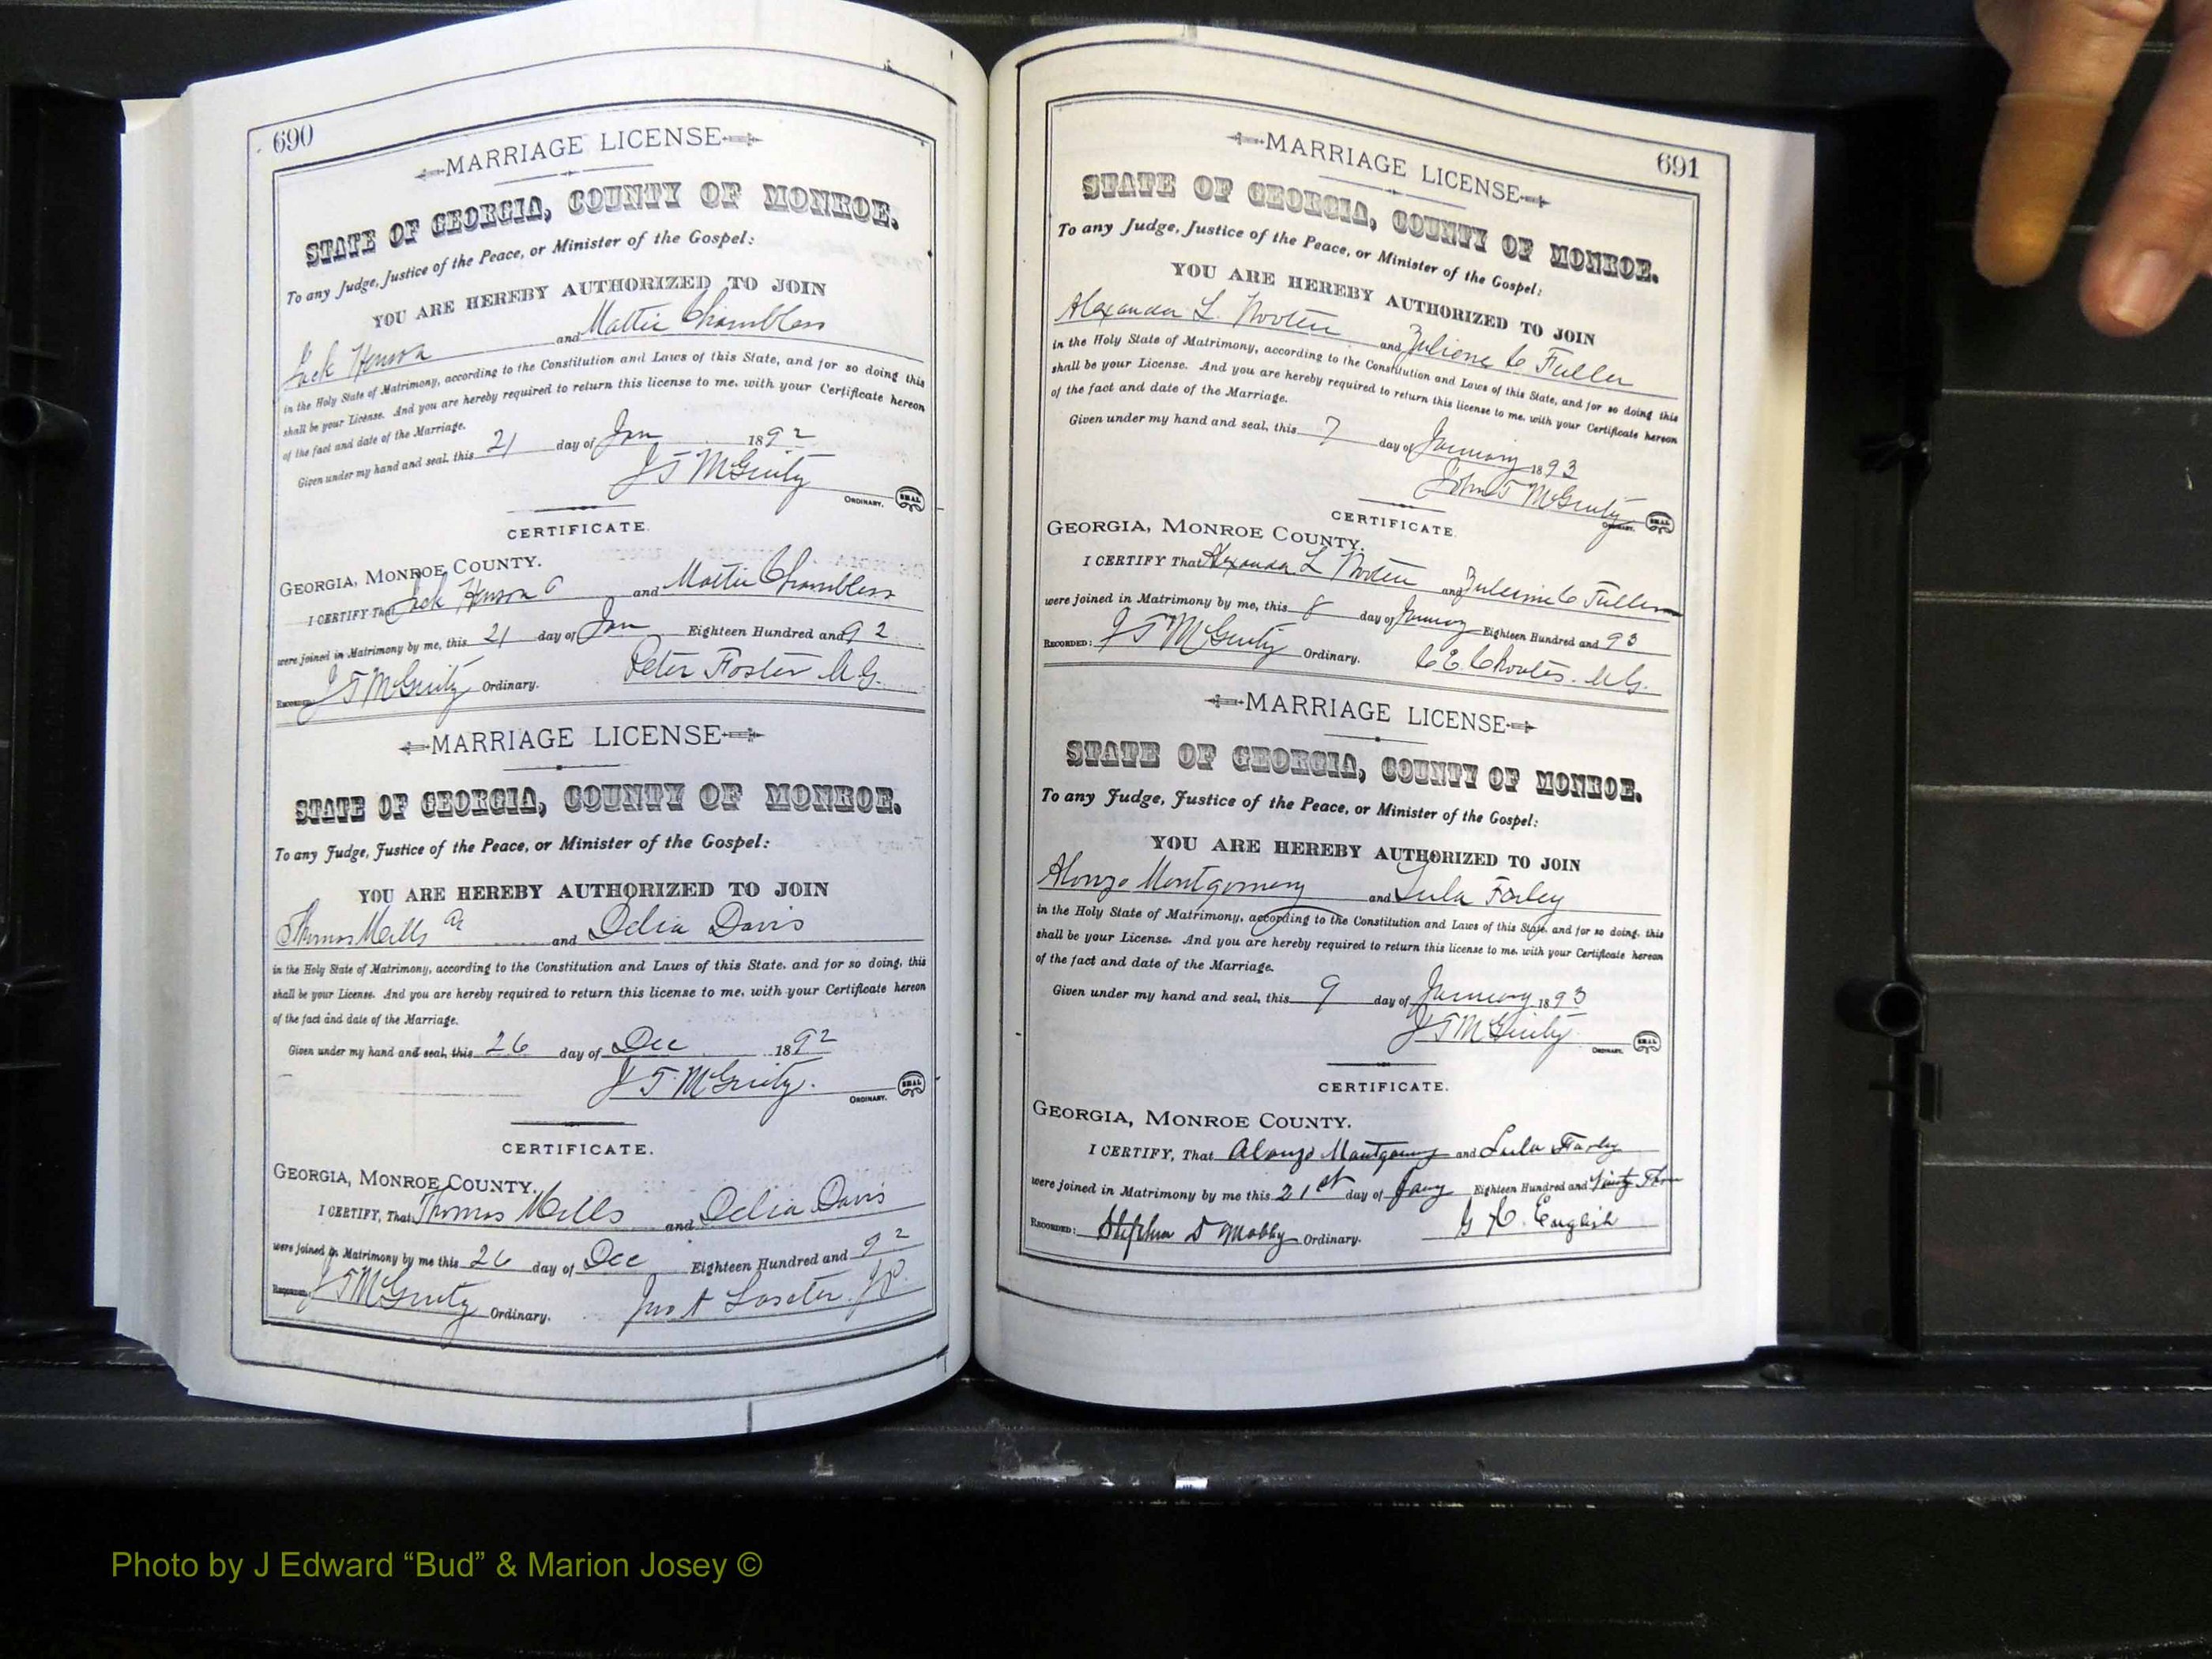 690
MARRIAGE LICENSE
STATE OF GEORGIA, COUNTY OF MONROE.
To any Judge, Justice of the Peace, or Minister of the Gospel:
YOU ARE HEREBY AUTHORIZED TO JOIN
Jack Henson and Mattie Chambless
in the Holy State of Matrimony, according to the Constitution and Laws of this State, and for so doing this
shall be your License. And you are hereby required to return this license to me, with your Certificate hereon
of the fact and date of the Marriage.
Given under my hand and seal, this 21 day of Jan 1892
J T McGinty
ORDINARY. SEAL
CERTIFICATE.
GEORGIA, MONROE COUNTY.
I CERTIFY That Jack Henson and Mattie Chambless
were joined in Matrimony by me, this 21 day of Jan Eighteen Hundred and 92
RECORDED: J T McGinty Ordinary. Peter Foster M.G.
MARRIAGE LICENSE
STATE OF GEORGIA, COUNTY OF MONROE.
To any Judge, Justice of the Peace, or Minister of the Gospel:
YOU ARE HEREBY AUTHORIZED TO JOIN
Thomas Mills and Delia Davis
in the Holy State of Matrimony, according to the Constitution and Laws of this State, and for so doing, this
shall be your License. And you are hereby required to return this license to me, with your Certificate hereon
of the fact and date of the Marriage.
Given under my hand and seal, this 26 day of Dec 1892
J T McGinty.
ORDINARY. SEAL
CERTIFICATE.
GEORGIA, MONROE COUNTY.
I CERTIFY, That Thomas Mills and Delia Davis
were joined in Matrimony by me this 26 day of Dec Eighteen Hundred and 92
RECORDED: J T McGinty Ordinary. Jno A Laseter J.P.
691
MARRIAGE LICENSE
STATE OF GEORGIA, COUNTY OF MONROE.
To any Judge, Justice of the Peace, or Minister of the Gospel:
YOU ARE HEREBY AUTHORIZED TO JOIN
Alexander L. Wooten and C Fuller
in the Holy State of Matrimony, according to the Constitution and Laws of this State, and for so doing this
shall be your License. And you are hereby required to return this license to me, with your Certificate hereon
of the fact and date of the Marriage.
Given under my hand and seal, this 7 day of January 1893
John T McGinty
ORDINARY. SEAL
CERTIFICATE.
GEORGIA, MONROE COUNTY.
I CERTIFY That Alexander L Wooten and C Fuller
were joined in Matrimony by me, this 8 day of January Eighteen Hundred and 93
RECORDED: J T McGinty Ordinary. C E Choates. M.G.
MARRIAGE LICENSE
STATE OF GEORGIA, COUNTY OF MONROE.
To any Judge, Justice of the Peace, or Minister of the Gospel:
YOU ARE HEREBY AUTHORIZED TO JOIN
Alonzo Montgomery and Lula Farley
in the Holy State of Matrimony, according to the Constitution and Laws of this State, and for so doing, this
shall be your License. And you are hereby required to return this license to me, with your Certificate hereon
of the fact and date of the Marriage.
Given under my hand and seal, this 9 day of January 1893
J T McGinty
ORDINARY. SEAL
CERTIFICATE.
GEORGIA, MONROE COUNTY.
I CERTIFY, That Alonzo Montgomery and Lula Farley
were joined in Matrimony by me this 21st day of Jany Eighteen Hundred and Ninty Three
RECORDED: Stephen D Mobby Ordinary. English
Photo by J Edward “Bud” & Marion Josey ©